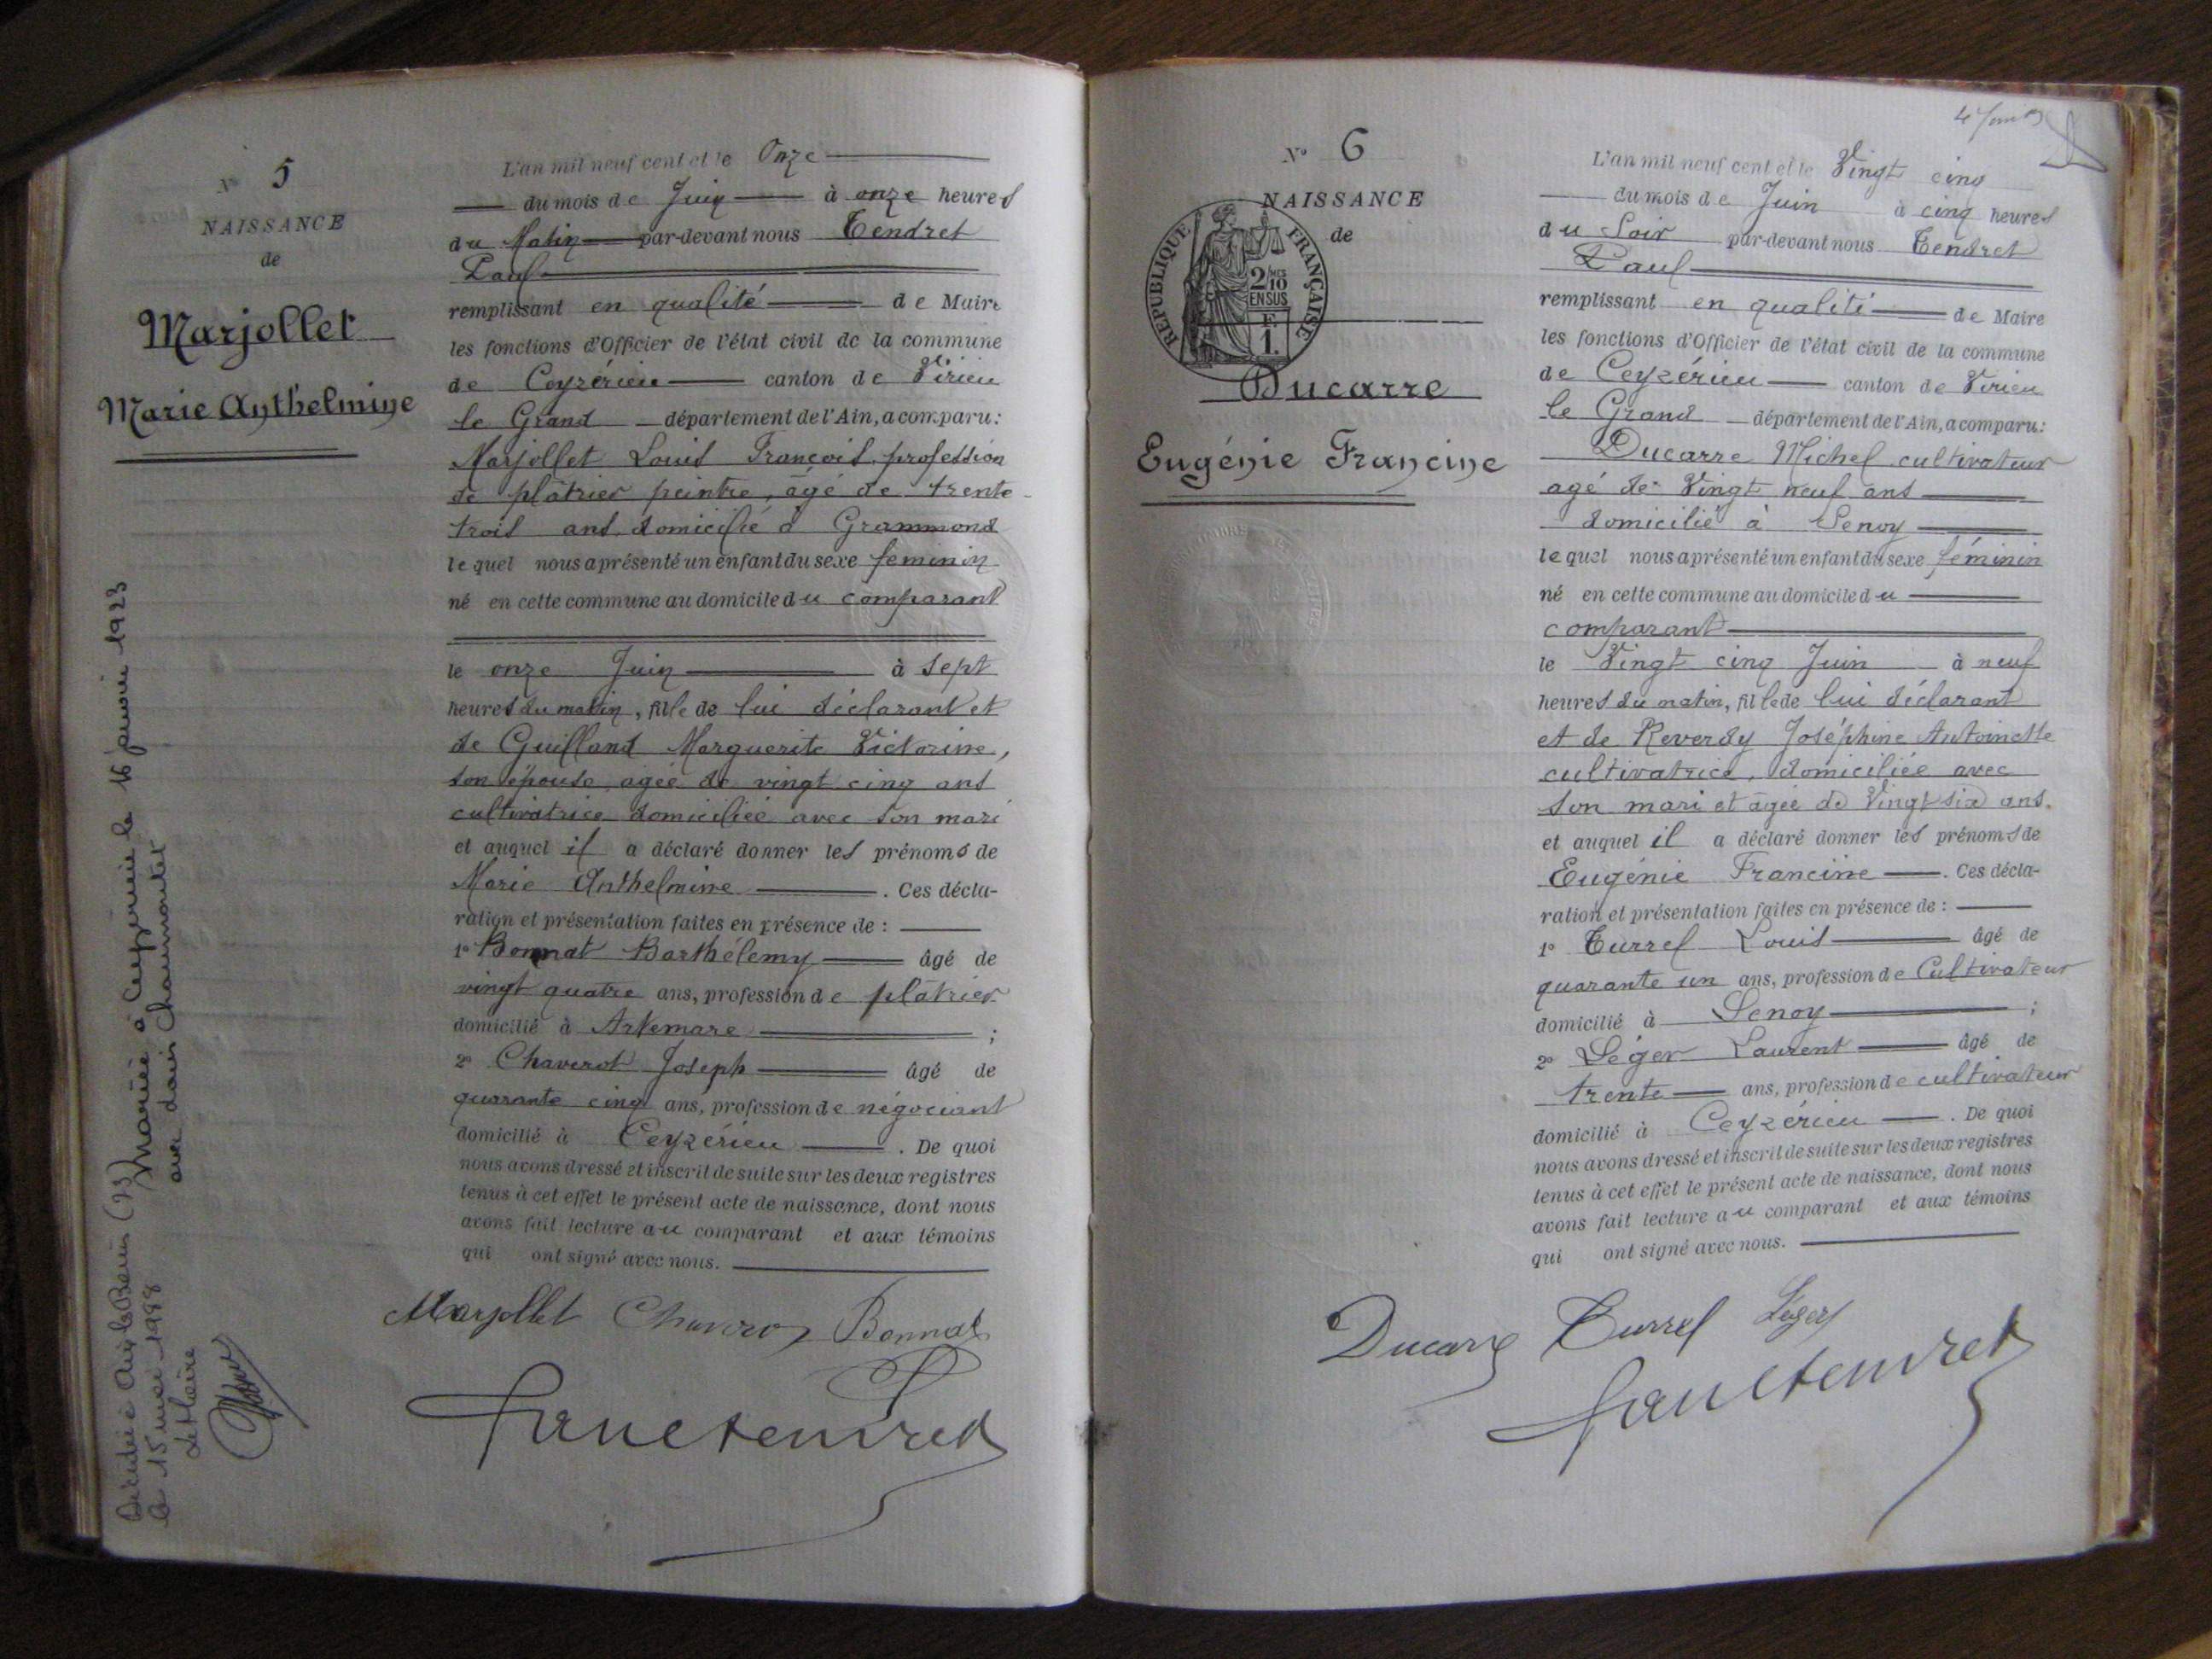 N° 5
NAISSANCE
de
Marjollet
Marie Anthelmine
L'an mil neuf cent et le Onze
du mois de Juin à onze heures
du Matin par-devant nous Tendret
Paul
remplissant en qualité de Maire
les fonctions d'Officier de l'état civil de la commune
de Ceyzérieu canton de Virieu
le Grand département de l'Ain, a comparu:
Marjollet Louis François, profession
de plâtrier peintre, âgé de trente
trois ans, domicilié à Grammond
lequel nous a présenté un enfant du sexe féminin
né en cette commune au domicile du comparant
le onze Juin à sept
heures du matin, fille de lui déclarant et
de Guilland Marguerite Victorine,
son épouse, agée de vingt cinq ans
cultivatrice domiciliée avec son mari
et auquel il a déclaré donner les prénoms de
Marie Anthelmine. Ces décla-
ration et présentation faites en présence de :
1° Bonnat Barthélemy âgé de
vingt quatre ans, profession de plâtrier
domicilié à Artemare ;
2° Chaverot Joseph âgé de
quarante cinq ans, profession de négociant
domicilié à Ceyzérieu. De quoi
nous avons dressé et inscrit de suite sur les deux registres
tenus à cet effet le présent acte de naissance, dont nous
avons fait lecture au comparant et aux témoins
qui ont signé avec nous.
Marjollet Chaverot Bonnat
Paul Tendret
Mariée à Ceyzérieu le 16 janvier 1923
avec Chaumontet
Décédée à Aix les Bains (73)
le 15 1998
Le Maire
N° 6
NAISSANCE
de
REPUBLIQUE FRANÇAISE
2/10
EN SUS
F.
1.
Ducarre
Eugénie Francine
L'an mil neuf cent et le Vingt cinq
du mois de Juin à cinq heures
du Soir par-devant nous Tendret
Paul
remplissant en qualité de Maire
les fonctions d'Officier de l'état civil de la commune
de Ceyzérieu canton de Virieu
le Grand département de l'Ain, a comparu:
Ducarre Michel cultivateur
agé de Vingt neuf ans
domicilié à Senoy
lequel nous a présenté un enfant du sexe féminin
né en cette commune au domicile du
comparant
le Vingt cinq Juin à neuf
heures du matin, fille de lui déclarant
et de Reverdy Joséphine Antoinette
cultivatrice, domiciliée avec
son mari et âgée de Vingt six ans.
et auquel il a déclaré donner les prénoms de
Eugénie Francine. Ces décla-
ration et présentation faites en présence de :
1° Turrel Louis âgé de
quarante un ans, profession de Cultivateur
domicilié à Senoy ;
2° Léger Laurent âgé de
trente ans, profession de cultivateur
domicilié à Ceyzérieu. De quoi
nous avons dressé et inscrit de suite sur les deux registres
tenus à cet effet le présent acte de naissance, dont nous
avons fait lecture au comparant et aux témoins
qui ont signé avec nous.
Ducarre Turrel Léger
Paul Tendret